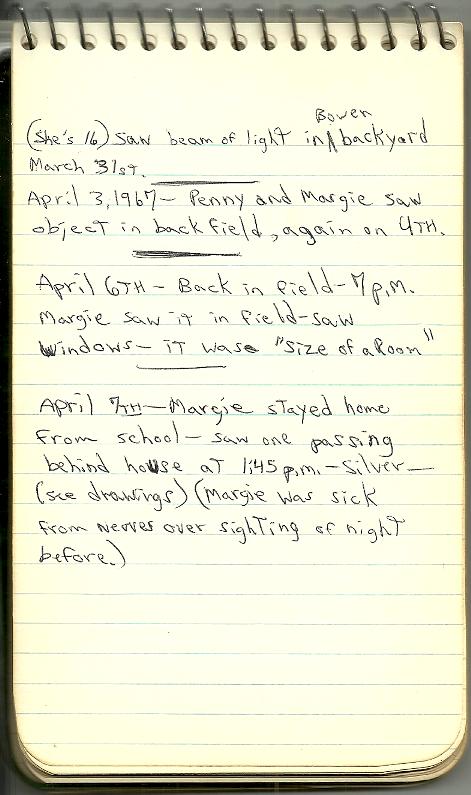 Bowen
(She's 16) saw beam of light in backyard
March 31st.
April 3, 1967- Penny and Margie saw
object in back field, again on 4TH.
April 6TH - Back in field - 7 p.m.
Margie saw it in field - saw
windows - it was "size of a Room"
April 7TH - Margie stayed home
from school - saw one passing
behind house at 1:45 p.m. - Silver -
(see drawings) (Margie was sick
from nerves over sighting of night
before.)